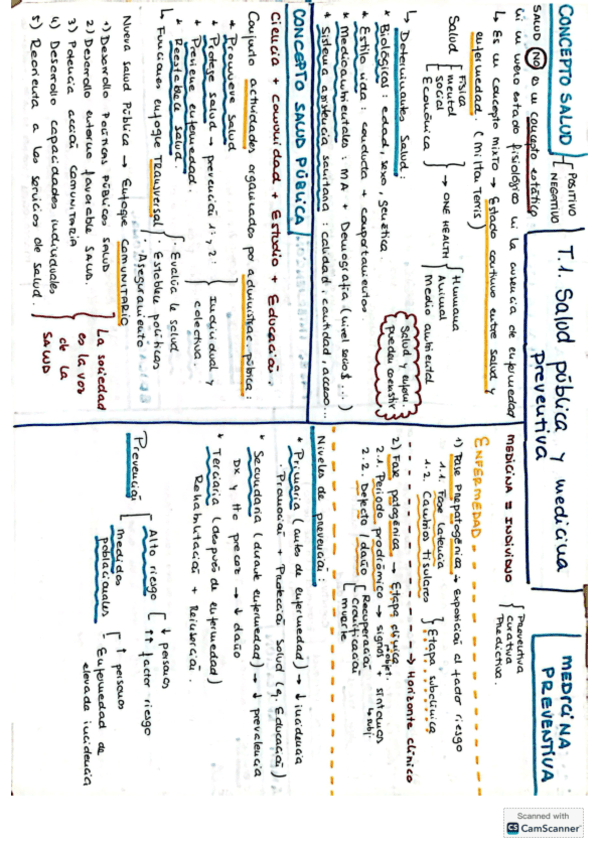 T.1. Salud pública y medicina
preventiva
CONCEPTO SALUD { POSITIVO
NEGATIVO
SALUD NO es un concepto estático
ni un mero estado fisiológico ni la ausencia de enfermedad
↳ Es un concepto mixto → Estado continuo entre salud y
enfermedad. (Milton Terris)
Salud { Física
mental
social
Económica } → ONE HEALTH { Humana
Animal
Medio ambiental
Salud y enfer.
pueden coexistir
↳ Determinantes Salud:
* Biológicas: edad, sexo, genética.
* Estilo vida: conducta + comportamientos.
* Medioambientales: MA + Demografía (nivel socio$...)
* Sistema asistencia sanitaria: calidad, cantidad, acceso...
CONCEPTO SALUD PÚBLICA
Ciencia + Comunidad + Estudio + Educación.
Conjunto actividades organizados por administrac. pública:
* Promueve salud
* Protege salud → prevención 1ª, 2ª } Individual y
* Previene enfermedad. colectiva.
* Reestablece salud.
↳ Funciones enfoque Transversal { · Evalúa la salud
· Establece políticas
· Aseguramiento
Nueva Salud Pública → Enfoque COMUNITARIO
1) Desarrollo Políticas Públicas SALUD
2) Desarrollo entorno favorable SALUD.
3) Potencia acción comunitaria
4) Desarrollo capacidades individuales
5) Reorienta a los servicios de salud.
La sociedad
es la voz
de la
SALUD
MEDICINA
PREVENTIVA
MEDICINA = INDIVIDUO { Preventiva
curativa
Predictiva.
ENFERMEDAD
1) Fase Prepatogénica → exposición al factor riesgo
1.1. Fase latencia
1.2. Cambios tisulares } Etapa subclínica
→ Horizonte clínico
2) Fase patogénica → Etapa clínica
2.1. Periodo prodrómico → signos + síntomas
objet. subj.
2.2. Defecto/daño [ Recuperación
Cronificación
muerte
Niveles de prevención:
* Primaria (antes de enfermedad) → ↓ incidencia
· Promoción + Protección salud (ej. Educación)
* Secundaria (durante enfermedad) → ↓ prevalencia
DX y tto precoz → ↓ daño
* Terciaria (después de enfermedad)
Rehabilitación + Reinserción.
Prevención { Alto riesgo [ ↓ personas
↑↑ factor riesgo
medidas
poblacionales [ ↑ personas
Enfermedad de
elevada incidencia
Scanned with
CS CamScanner